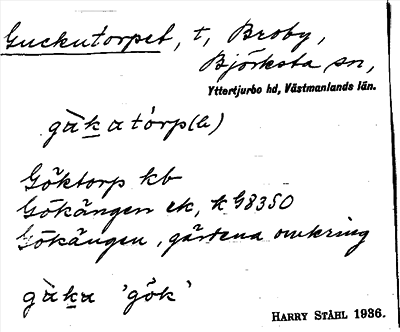 Guckutorpet, t, Broby,
Björksta sn,
Yttertjurbo hd, Västmanlands län.
gὰkatórp(ə)
Göktorp kb
Gökängen ek, k G8350
Gökängen, gärdena omkring
gὰka 'gök'
HARRY STÅHL 1936.